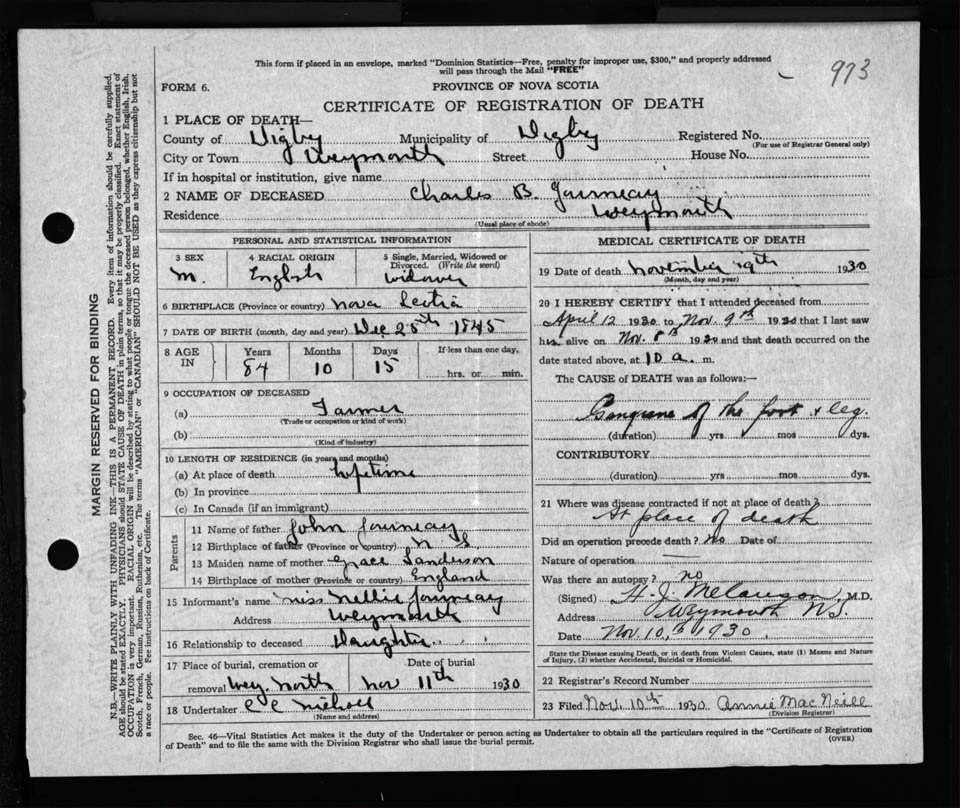 This form if placed in an envelope, marked "Dominion Statistics—Free, penalty for improper use, $300," and properly addressed
will pass through the Mail "FREE"
973
FORM 6.
PROVINCE OF NOVA SCOTIA
CERTIFICATE OF REGISTRATION OF DEATH
1 PLACE OF DEATH—
County of Digby Municipality of Digby Registered No.
(For use of Registrar General only)
City or Town Weymouth Street House No.
If in hospital or institution, give name
2 NAME OF DECEASED Charles B.
Residence Weymouth
(Usual place of abode)
PERSONAL AND STATISTICAL INFORMATION
3 SEX 4 RACIAL ORIGIN 5 Single, Married, Widowed or
Divorced. (Write the word)
M. English widower
6 BIRTHPLACE (Province or country) Nova Scotia
7 DATE OF BIRTH (month, day and year) Dec 25th 1845
8 AGE IN Years Months Days If less than one day,
84 10 15 hrs. or min.
9 OCCUPATION OF DECEASED
(a) Farmer
(Trade or occupation or kind of work)
(b)
(Kind of industry)
10 LENGTH OF RESIDENCE (in years and months)
(a) At place of death Lifetime
(b) In province
(c) In Canada (if an immigrant)
Parents
11 Name of father John
12 Birthplace of father (Province or country) N S
13 Maiden name of mother Grace Sanderson
14 Birthplace of mother (Province or country) England
15 Informant's name Miss Nellie
Address Weymouth
16 Relationship to deceased Daughter
17 Place of burial, cremation or Date of burial
removal Wey. North Nov 11th 1930
18 Undertaker C C Nichols
(Name and address)
MEDICAL CERTIFICATE OF DEATH
19 Date of death November 9th 1930
(Month, day and year)
20 I HEREBY CERTIFY that I attended deceased from
April 12 1930 to Nov. 9th 1930 that I last saw
him alive on Nov. 8th 1930 and that death occurred on the
date stated above, at 10 a. m.
The CAUSE OF DEATH was as follows:—
Gangrene of the foot & leg.
(duration) yrs. mos dys.
CONTRIBUTORY
(duration) yrs. mos. dys.
21 Where was disease contracted if not at place of death?
At place of death
Did an operation precede death? No Date of
Nature of operation
Was there an autopsy? no
(Signed) H. J. Melanson, M.D.
Address Weymouth N.S.
Date Nov. 10th 1930.
State the Disease causing Death, or in death from Violent Causes, state (1) Means and Nature
of Injury, (2) whether Accidental, Suicidal or Homicidal.
22 Registrar's Record Number
23 Filed Nov. 10th 1930 Annie MacNeill
(Division Registrar)
Sec. 46—Vital Statistics Act makes it the duty of the Undertaker or person acting as Undertaker to obtain all the particulars required in the "Certificate of Registration
of Death" and to file the same with the Division Registrar who shall issue the burial permit.
(OVER)
MARGIN RESERVED FOR BINDING
N.B.—WRITE PLAINLY WITH UNFADING INK—THIS IS A PERMANENT RECORD. Every item of information should be carefully supplied.
AGE should be stated EXACTLY. PHYSICIANS should STATE CAUSE OF DEATH in plain terms, so that it may be properly classified. Exact statement of
OCCUPATION is very important. RACIAL ORIGIN will be described by stating to what people or tongue the deceased person belonged, whether English, Irish,
Scotch, French, German, Russian, Ruthenian, etc. The terms "AMERICAN" or "CANADIAN" SHOULD NOT BE USED as they express citizenship but not
a race or people. See instructions on back of Certificate.